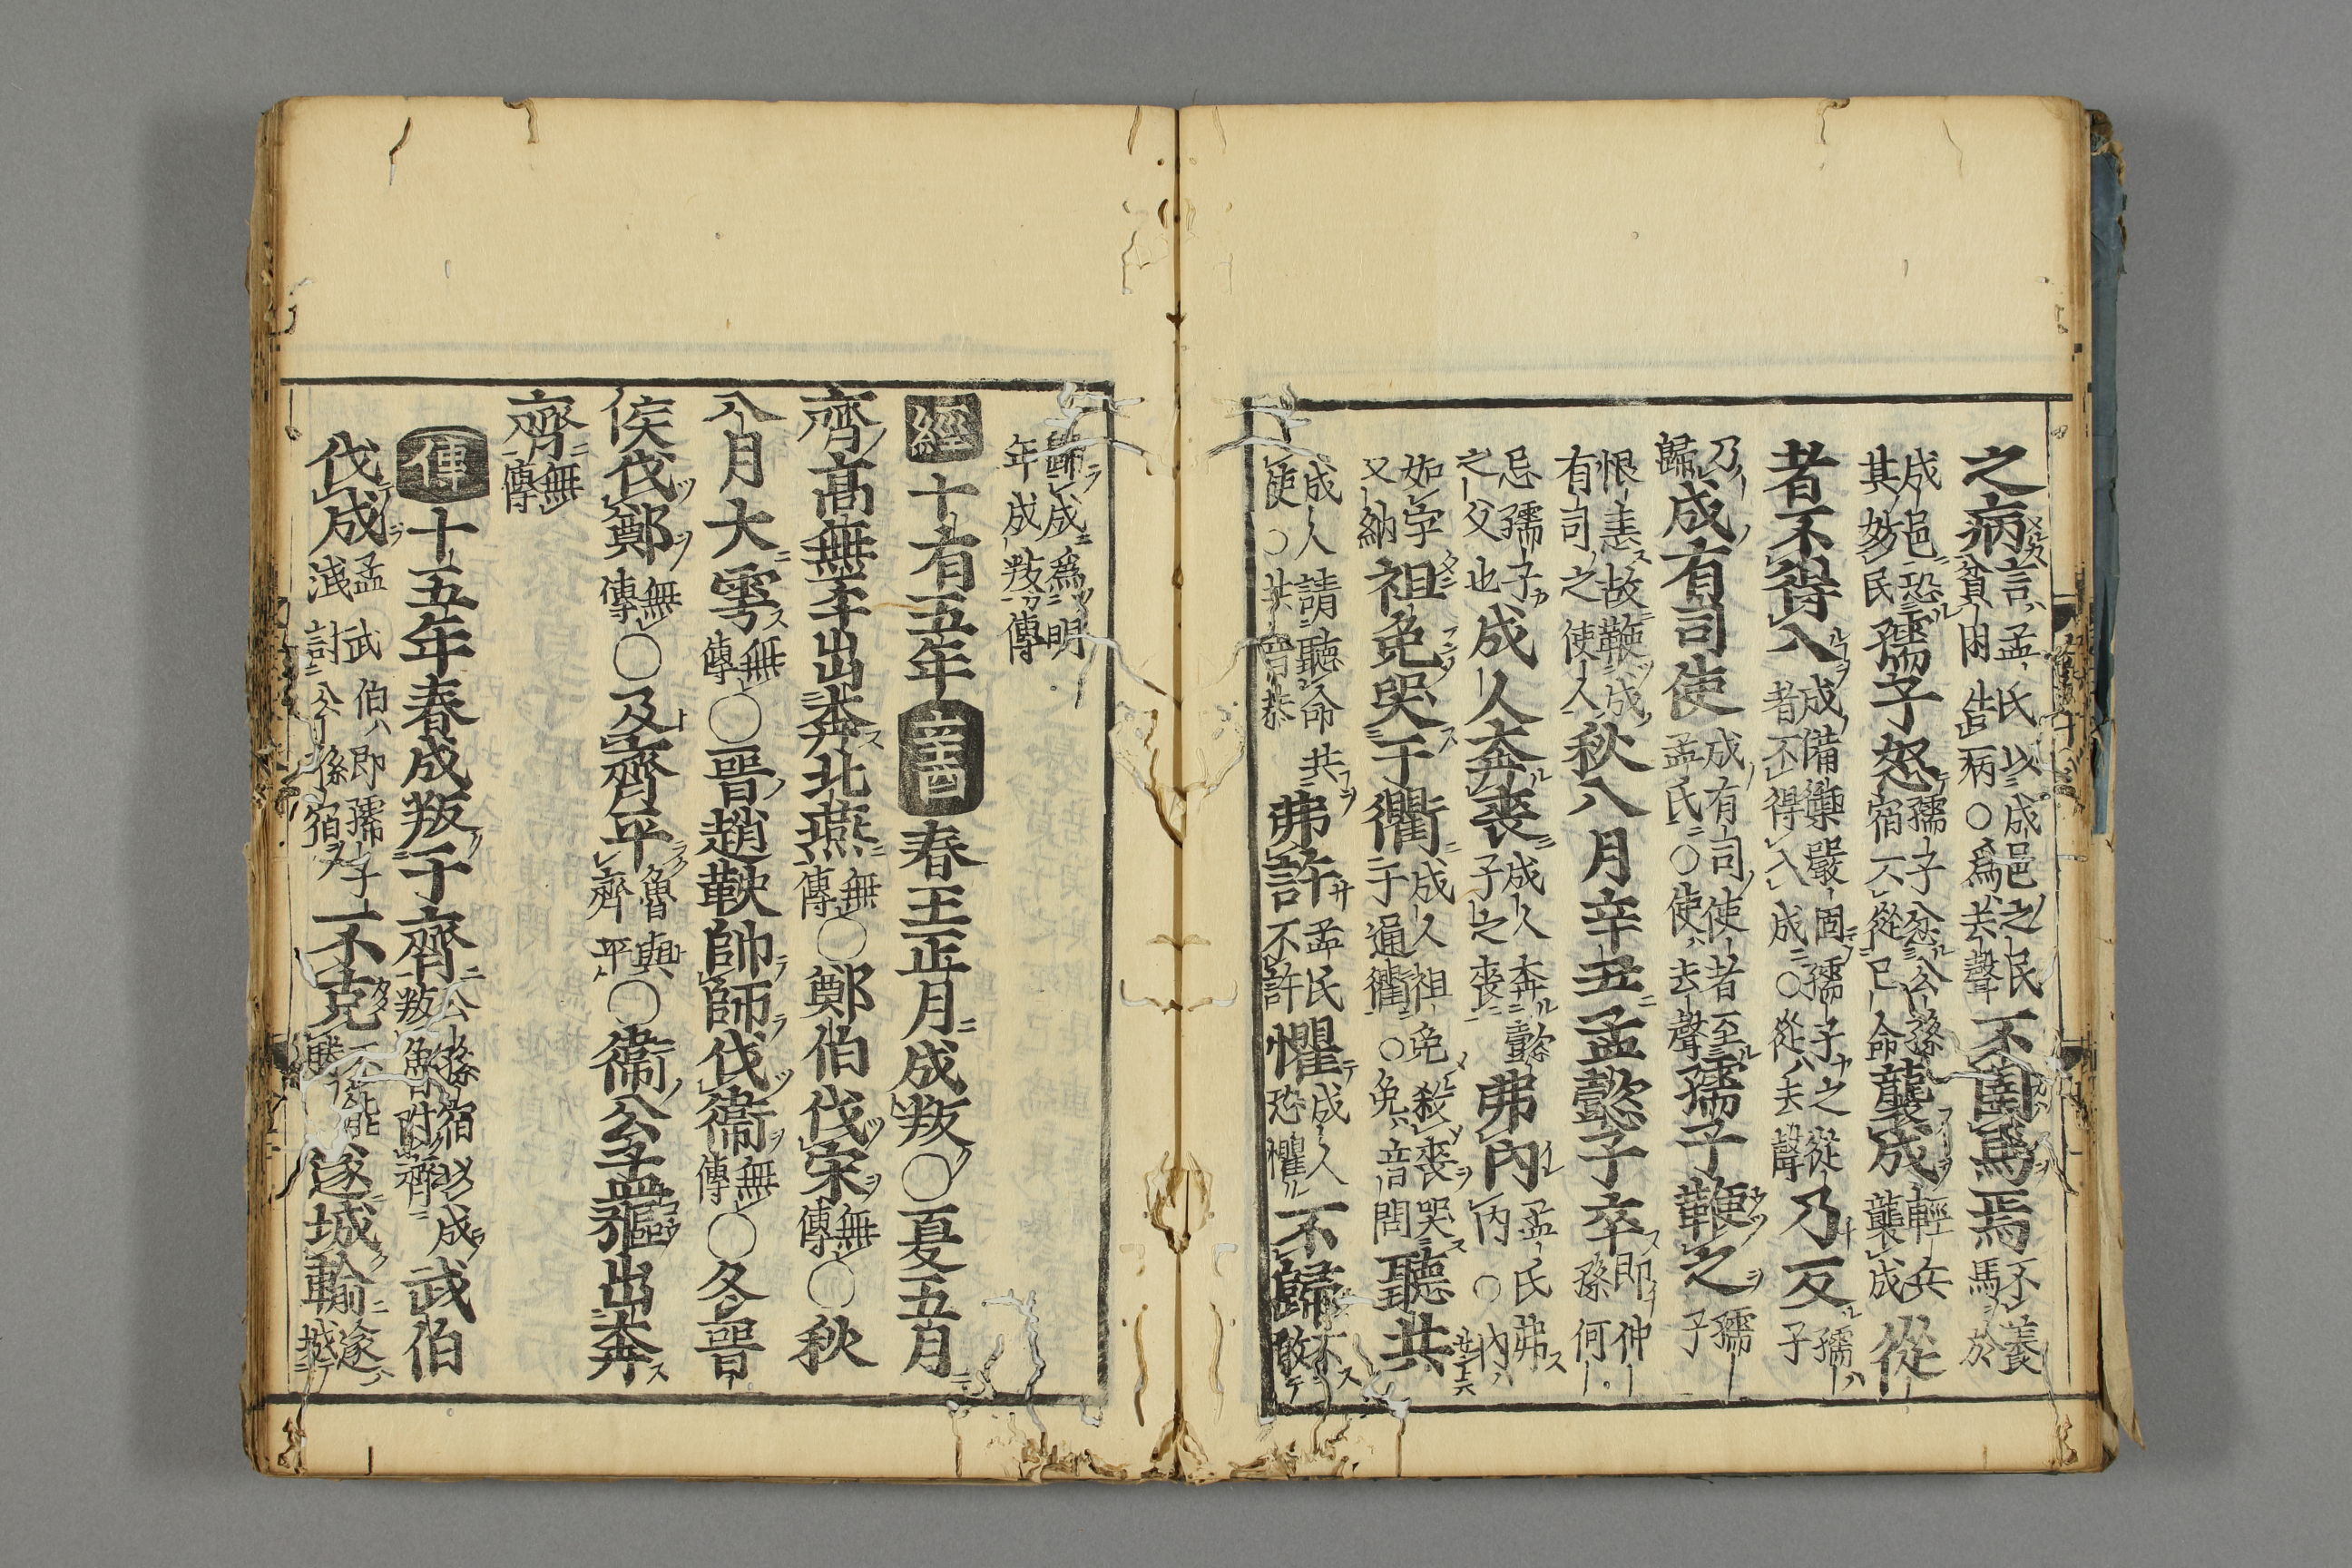 之病言孟氏以成邑之民貧困告病○爲去聲不圉馬焉不養馬於
成邑恐其妨民孺子怒孺子忿公孫宿不從己命襲成輕兵襲成從
者不得入成備禦嚴固孺子之從者不得入成○從去聲乃反孺子
乃歸成有司使成有司使者至孟氏○使去聲孺子鞭之孺子
恨恚故鞭成有司之使人秋八月辛丑孟懿子卒即仲孫何
忌孺子之父也成人奔喪成人奔懿子之喪弗內孟氏弗內○內
如字又納袒免哭于衢成人袒免殺喪哭于通衢○免音問聽共
成人請聽命共使○共音恭弗許孟氏不許懼成人恐懼不歸不敢
歸成爲明年成叛傳
經十有五年春王正月成叛○夏五月
齊高無㔻出奔北燕無傳○鄭伯伐宋無傳○秋
八月大雩無傳○晉趙鞅帥師伐衞無傳○冬晉
侯伐鄭無傳○及齊平魯與齊平○衞公孟彄出奔
齊無傳
傳十五年春成叛于齊公孫宿以成叛魯附齊武伯
伐成孟武伯即孺子洩討公孫宿不克不能勝遂城輸遂城